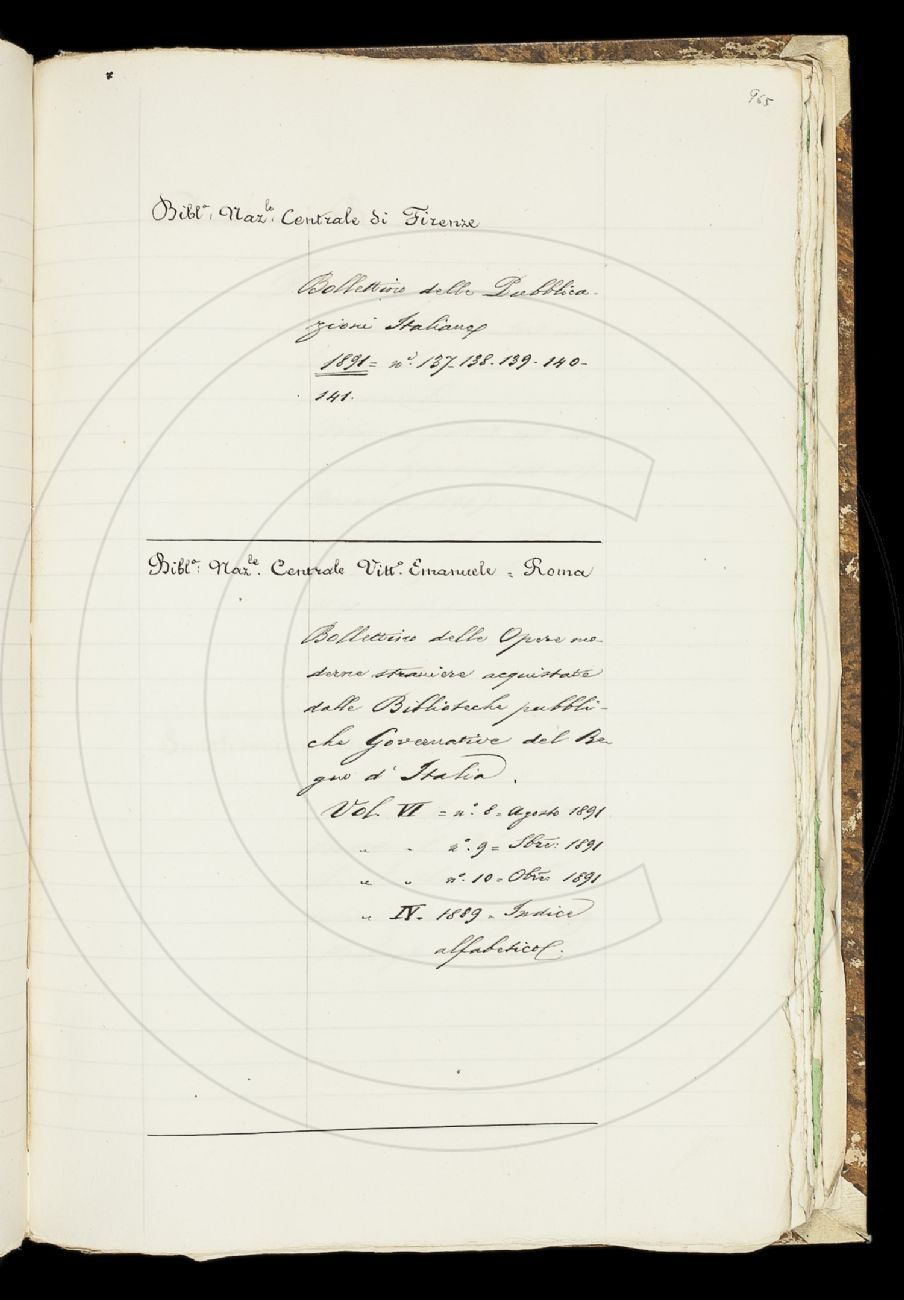 965
Bibl.ª Naz.le Centrale di Firenze
Bollettino delle Pubblica-
zioni Italiane
1891 = n.i 137-138-139-140-
141.
Bibl.ª Naz.le Centrale Vitt.º Emanuele = Roma
Bollettino delle Opere mo-
derne straniere acquistate
dalle Biblioteche pubbli-
che Governative del Re-
gno d'Italia.
Vol. VI = n.º 8 = Agosto 1891
" " n.º 9 = Sbre: 1891
" " n.º 10 = Obre 1891
" IV = 1889 = Indice
alfabetico.